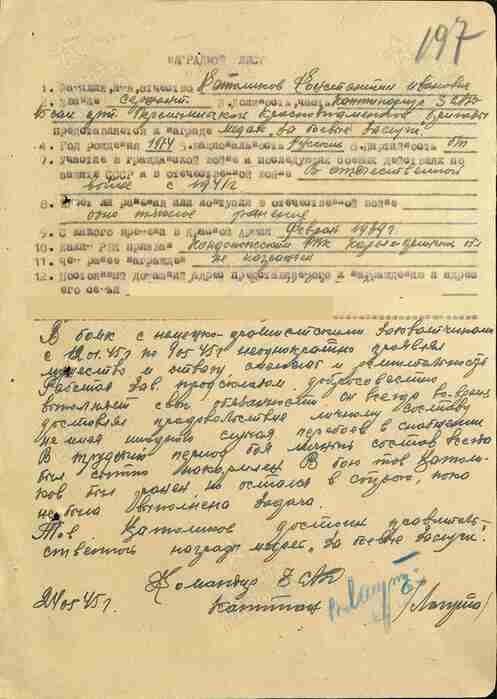 197
НАГРАДНОЙ ЛИСТ
1. Фамилия, имя, отчество Католиков Константин Иванович
2. Звание сержант 3. Должность, часть
артил. Перемышльской Краснознаменной бригады
представляется к награде медаль "За боевые заслуги"
4. Год рождения 1914 5. национальность Русский 6. партийность б/п
7. участие в гражданской войне и последующих боевых действиях по
защите СССР и в отечественной войне В отечественной
войне с 1941г
8. Имеет ли ранения или контузии в отечественной войне
одно тяжелое ранение
9. С какого времени в Красной армии Февраль 1939г.
10. каким РВК призван Кондопожский РВК
11. чем ранее награжден не награжден
12. Постоянный домашний адрес представляемого к награждению и адрес
его семьи
В боях с немецко-фашистскими захватчиками
с 12.01.45г по 9.05.45г неоднократно проявлял
мужество и отвагу, смелость и решительность
Работая зав. продскладом добросовестно
выполняет свои обязанности он всегда во-время
доставлял продовольствие личному составу
не имея ни одного случая перебоев в снабжении
В трудный период боя личный состав всегда
был сытно накормлен В бою тов Католи-
ков был ранен, но остался в строю, пока
не была выполнена задача.
Тов Католиков достоин правитель-
ственной награды медаль "За боевые заслуги".
Командир
24.05.45г. капитан